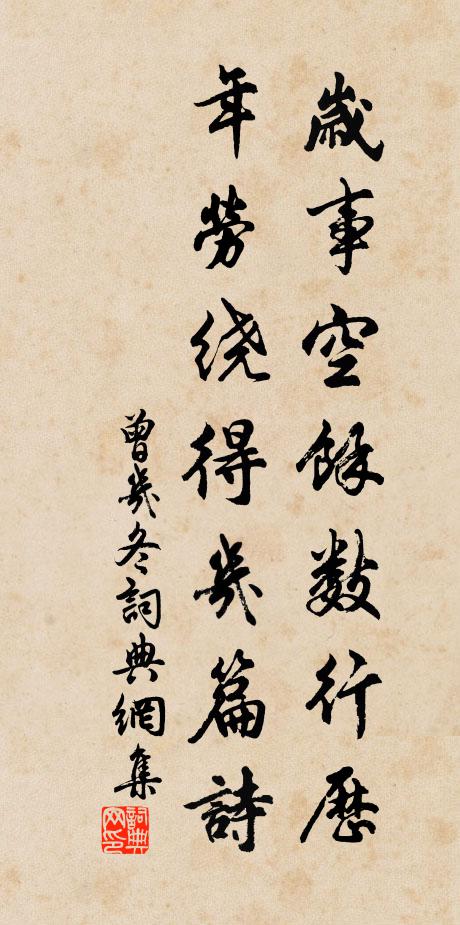 歲事空餘數行曆
年勞绕得幾篇詩
曾幾冬詞典網集
詞典网印